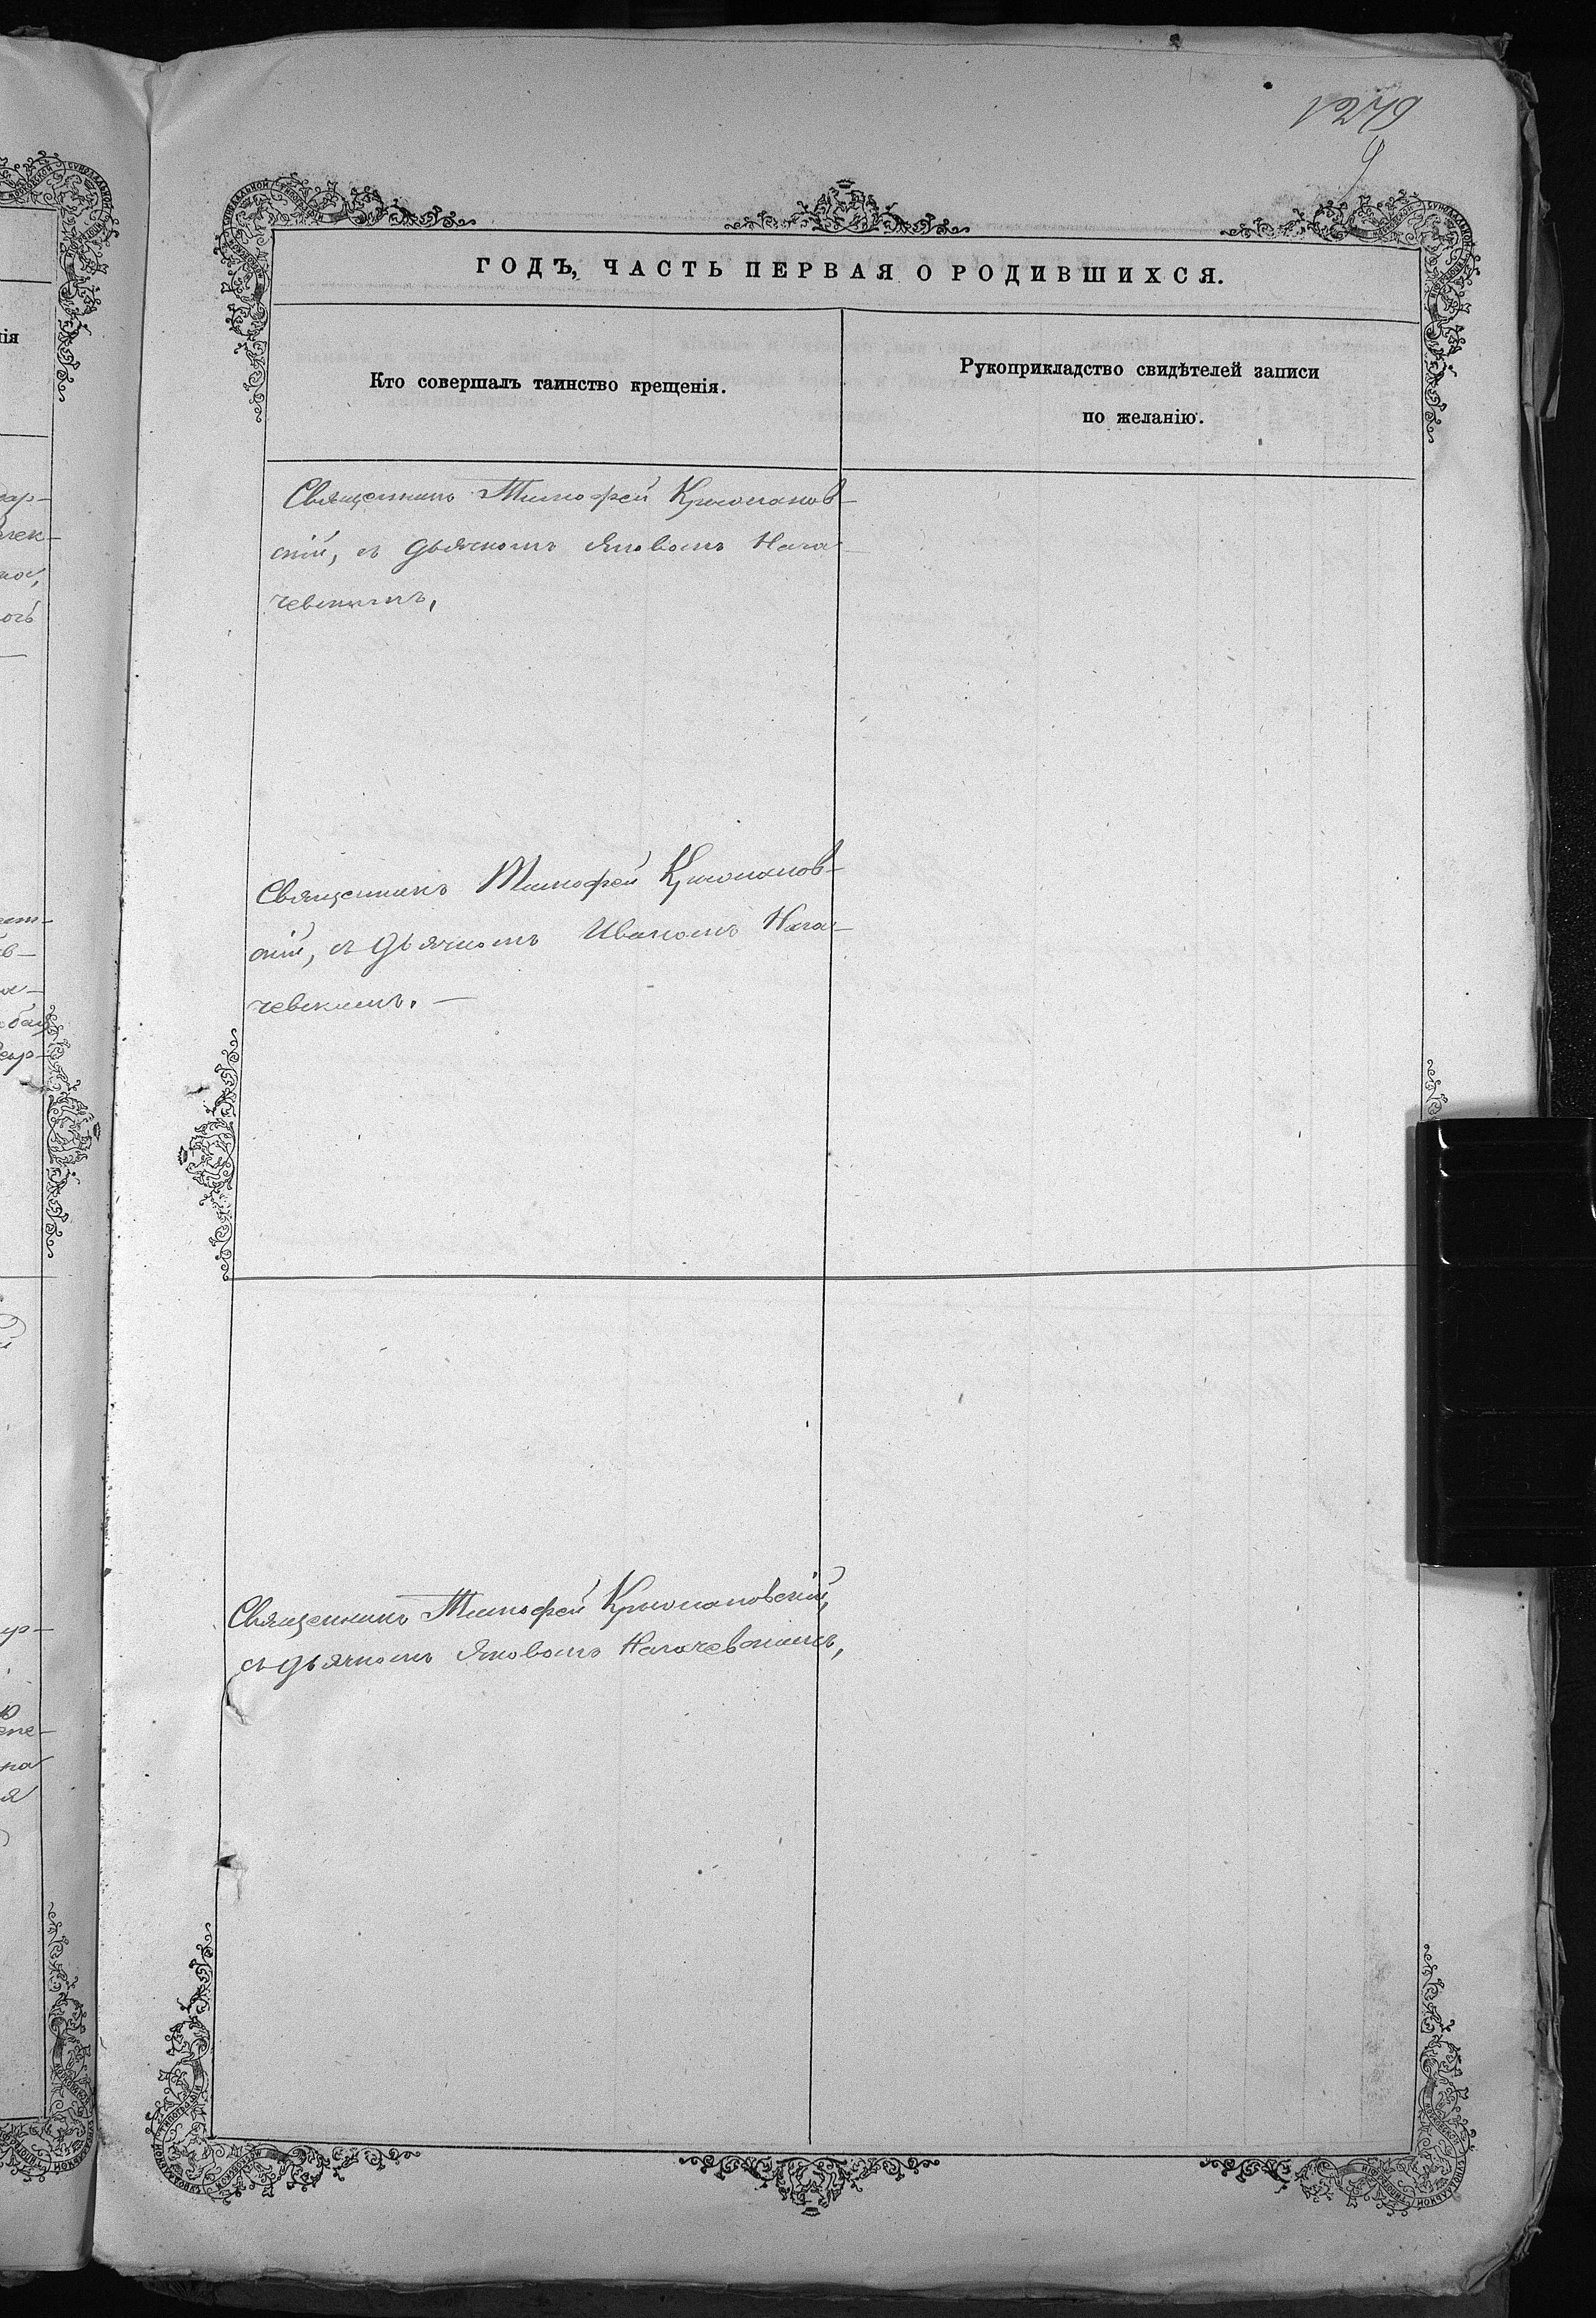 ГОДЪ, ЧАСТЬ ПЕРВАЯ О РОДИВШИХСЯ.
Кто совершалъ таинство крещенія.
Рукоприкладство свидѣтелей записи
по желанію.
Священникъ Тимофей
скій, съ дьячкомъ Яковомъ Нага-
чевскимъ,
Священникъ Тимофей
скій, съ дьячкомъ Иваномъ Нага-
чевскимъ. —
Священникъ Тимофей
съ дьячкомъ Яковомъ Нагачевскимъ,